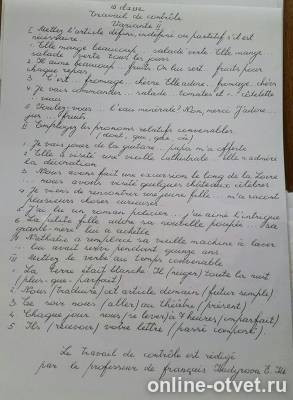 10 classe
Travail de contrôle
Variante II
I. Mettez l'article défini, indéfini ou partitif s'il est
nécessaire.
1. Elle mange beaucoup ... salade verte. Elle mange ...
salade verte tous les jours.
2. Il aime beaucoup ... fruits. On lui sert ... fruits pour
chaque repas.
3. C'est ... fromage ... chèvre. Elle adore ... fromage ... chèvre
4. Je vais commander ... salade ... tomates et ... côtelette
... veau
5. Voulez-vous ... l'eau minérale? Non, merci. J'adore...
jus ... fruits
II. Employez les pronoms relatifs convenables
(dont, que, qui, où)
1. Je vous joue de la guitare ... papa m'a offerte
2. Elle a visité une vieille cathédrale ... elle a admiré
la décoration
3. Nous avons fait une excursion le long de la Loire
... nous avons visité quelques châteaux célèbres
4. Je viens de rencontrer une jeune fille ... m'a raconté
plusieurs choses curieuses
5. J'ai lu un roman policier ... j'ai aimé l'intrigue
6. La petite fille adore sa nouvelle poupée ... sa
grand-mère lui a achetée
7. Nathalie a remplacé sa vieille machine à laver
... lui avait servi pendant quinze ans.
III. Mettez le verbe au temps convenable
1. La terre était blanche. Il (neiger) toute la nuit
(plus-que-parfait)
2. Vous (traduire) cet article demain (futur simple)
3. Ce soir nous (aller) au théâtre (présent)
4. Chaque jour nous (se lever) à 7 heures (imparfait)
5. Ils (recevoir) votre lettre (passé composé)
Le travail de contrôle est rédigé
par le professeur de français
online-otvet.ru